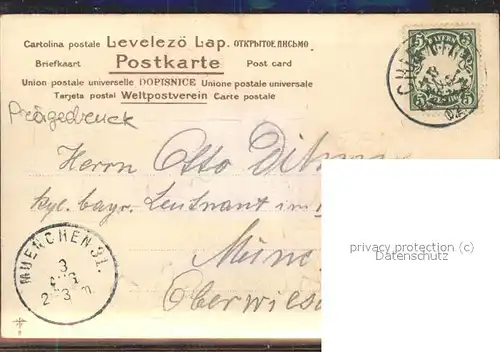 Cartolina postale Levelező Lap. ОТКРЫТОЕ ПИСЬМО
Briefkaart Postkarte Post card
Union postale universelle DOPISNICE Unione postale universale
Tarjeta postal Weltpostverein Carte postale
Prägedruck
Herrn Otto
kgl. bayr. Leutnant im
Münc
Oberwies
MUENCHEN 31.
3
2-3 n
5 BAYERN 5
5 5
privacy protection (c)
Ansichtskarten Center